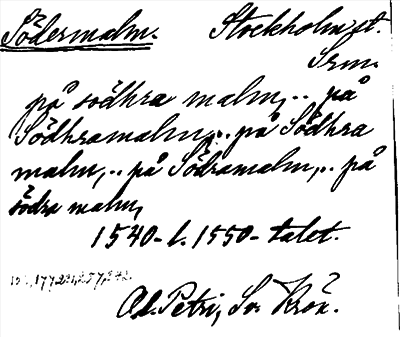 Södermalm. Stockholm st.
Srm.
på södhra malm,.. på
Södhramalm,.. på Södhra
malm,.. på Södramalm,.. på
södra malm,
1540-t. 1550-talet.
Ol. Petri, Sv. Krön.